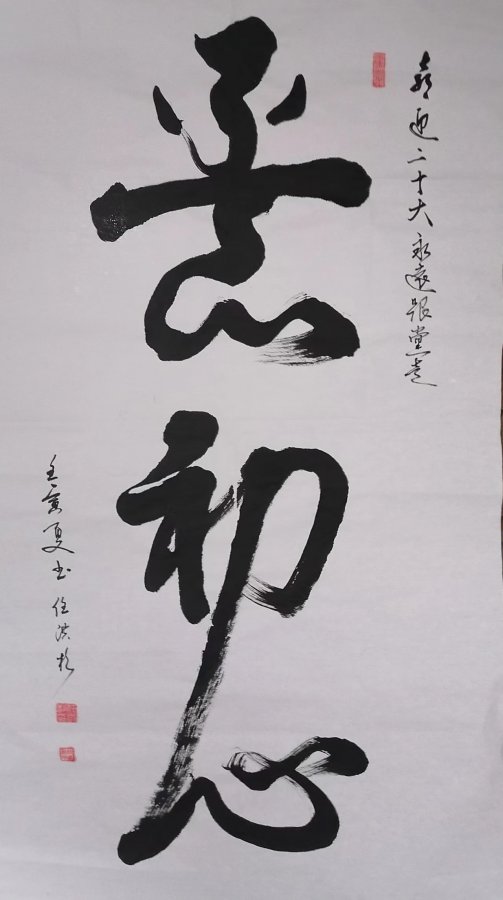 喜迎二十大永遠跟党走
初心
壬寅夏书 任洪杉